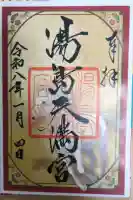 奉拝
湯島天満宮
令和八年一月四日